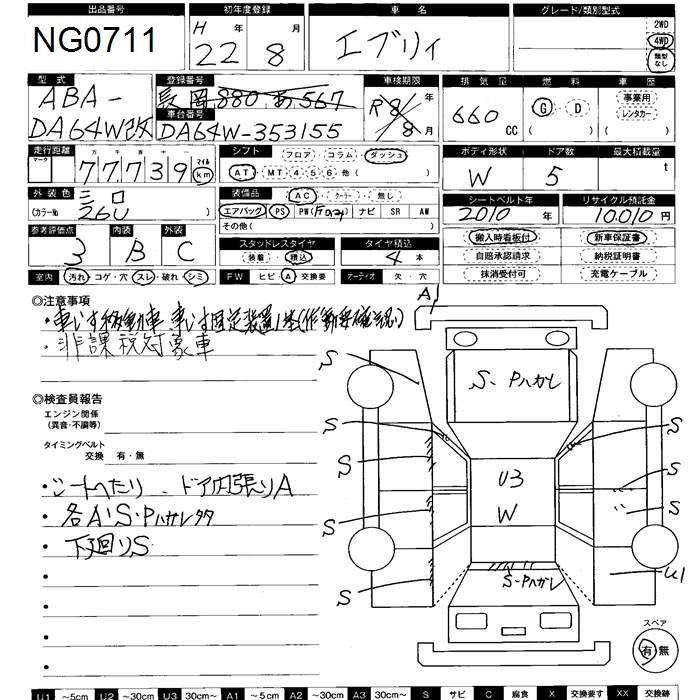 出品番号 初年度登録 車名 グレード/類別型式
NG0711 H 22 年 8 月 エブリィ 2WD 4WD 類型なし
型式 登録番号 車検期限 排気量 燃料 車歴
ABA- 長岡 880 あ 567 R 8 年 660 CC G・D ( ) 事業用 レンタカー ( )
DA64W改 車台番号 DA64W-353155 8 月
走行距離 シフト フロア・コラム・ダッシュ ボディ形状 ドア数 最大積載量
マーク 十万 万 千 百 十 一 77739 マイル km AT・MT 4 5 6 他( ) W 5 t
外装色 装備品 AC・クーラー・無し シートベルト年 リサイクル預託金
(カラーNo. 26U ) エアバッグ PS PW( ) ナビ SR AW 2010 年 10010 円
その他( )
参考評価点 内装 外装 スタッドレスタイヤ タイヤ積込 搬入時看板付 新車保証書
3 B C 装着・積込 4 本 自賠承認請求 納税証明書
室内 汚れ・コゲ・穴・スレ・破れ・シミ FW ヒビ・A・交換要 オーディオ 欠・穴 抹消受付可 充電ケーブル
◎注意事項
・車いす移動車 車いす固定装置1基(作動要確認)
・非課税対象車
◎検査員報告
エンジン関係
(異音・不調等)
タイミングベルト
交換 有・無
・シートへたり、ドア内張りA
・各A・S・Pハカレタタ
・下廻りS
A
S S・Pハカレ
S S
S U3 S
S W S
S S・Pハカレ U1
スペア
有・無
U1 ~5cm U2 ~30cm U3 30cm~ A1 ~5cm A2 ~30cm A3 30cm~ S サビ C 腐食 X 交換要す XX 交換跡